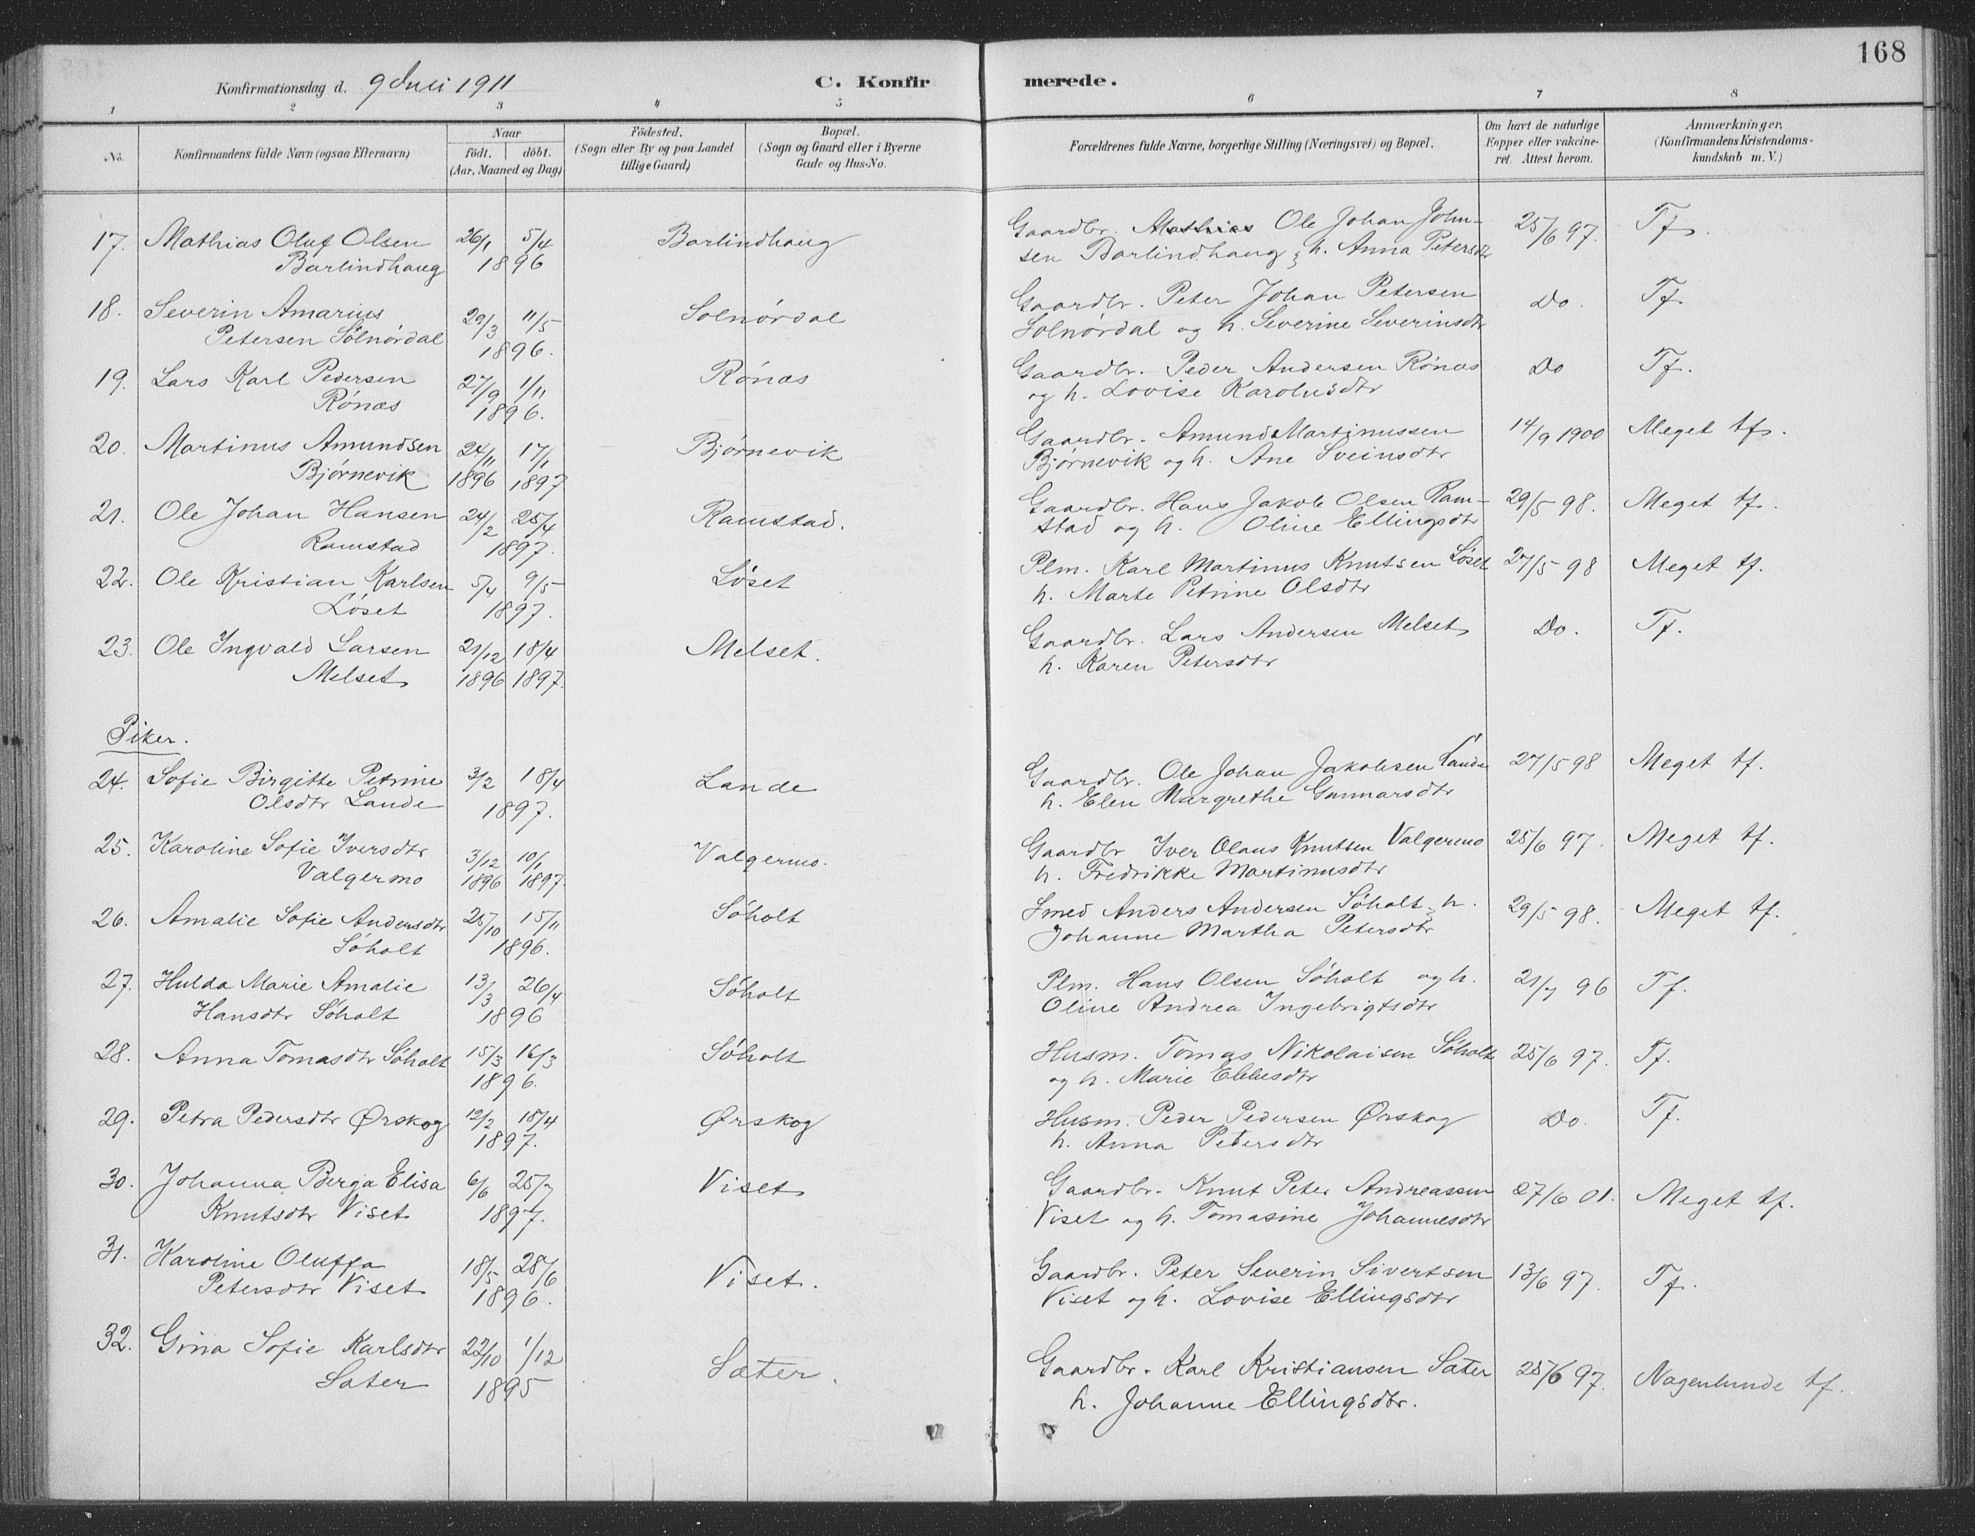 168
Konfirmationsdag d. 9 Juli 1911 C. Konfirmerede.
1 2 3 4 5 6 7 8
No. Konfirmandens fulde Navn (ogsaa Efternavn) Naar Födt. döbt. (Aar, Maaned og Dag) Födested. (Sogn eller By og paa Landet tillige Gaard) Bopæl. (Sogn og Gaard eller i Byerne Gade og Hus-No. Forældrenes fulde Navne, borgerlige Stilling (Næringsvei) og Bopæl. Om havt de naturlige Kopper eller vakcineret. Attest herom. Anmærkninger. (Konfirmandens Kristendomskundskab m. V.)
17. Mathias Oluf Olsen 26/1 5/4 Barlindhaug Gaardbr. Ole Johan John- 25/6 97. Tf.
Barlindhaug 1896 sen Barlindhaug h. Anna Petersdtr
18. Severin Amarius 29/3 11/5 Solnørdal Gaardbr. Peter Johan Petersen Do. Tf.
Petersen Sølnørdal 1896. Solnørdal og h. Severine Severinsdtr
19. Lars Karl Pedersen 27/9 1/11 Rönæs Gaardbr. Peder Andersen Rönæs Do Tf.
Rönæs 1896. og h. Lovise Karolusdtr
20. Martinus Amundsen 24/11 17/1 Bjørnevik Gaardbr. Amund Martinussen 14/9 1900 Meget tf.
Bjørnevik 1896 1897 Bjørnevik og h. Ane Sveinsdtr
21. Ole Johan Hansen 24/2 25/4 Ramstad. Gaardbr. Hans Jakob Olsen Ram- 29/5 98. Meget tf.
Ramstad 1897. stad og h. Oline Ellingsdtr
22. Ole Kristian Karlsen 5/4 9/5 Löset Plm. Karl Martinus Knutsen Löset 27/5 98 Meget tf.
Löset 1897. h. Marte Petrine Olsdtr
23. Ole Ingvald Larsen 21/12 18/4 Melset. Gaardbr. Lars Andersen Melset Do. Tf.
Melset 1896 1897. h. Karen Petersdtr
Piker.
24. Sofie Birgitte Petrine 3/2 18/4 Lande Gaardbr. Ole Johan Jakobsen Lande 27/5 98 Meget tf.
Olsdtr Lande 1897. h. Elen Margrethe Gunnarsdtr
25. Karoline Sofie Iversdtr 3/12 10/1 Valgermo. Gaardbr Iver Olaus Knutsen Valgermo 25/6 97. Meget tf.
Valgermo 1896 1897. h. Fredrikke Martinusdtr
26. Amalie Sofie Andersdtr 25/10 15/11 Søholt Smed Anders Andersen Søholt h. 29/5 98. Meget tf.
Søholt 1896. Johanne Martha Petersdtr
27. Hulda Marie Amalie 13/3 26/4 Søholt Plm. Hans Olsen Søholt og h. 21/7 96 Tf.
Hansdtr Søholt 1896 Oline Andrea Ingebrigtsdtr
28. Anna Tomasdtr Søholt 15/3 16/3 Søholt Husm. Tomas Nikolaisen Søholt 25/6 97. Tf.
1896. og h. Marie Ebbesdtr
29. Petra Pedersdtr Ørskog 12/2 18/4 Ørskog Husm. Peder Pedersen Ørskog Do. Tf.
1897. h. Anna Petersdtr
30. Johanna Berga Elisa 6/6 25/7 Viset Gaardbr. Knut Peter Andreassen 27/6 01. Meget tf.
Knutsdtr Viset 1897. Viset og h. Tomasine Johannesdtr
31. Karoline Oluffa 18/5 28/6 Viset. Gaardbr. Peter Severin Sivertsen 13/6 97. Tf.
Petersdtr Viset 1896. Viset og h. Lovise Ellingsdtr
32. Gina Sofie Karlsdtr 22/10 1/12 Sæter. Gaardbr. Karl Kristiansen Sæter 25/6 97. Nogenlunde tf.
Sæter 1895 h. Johanne Ellingsdtr.